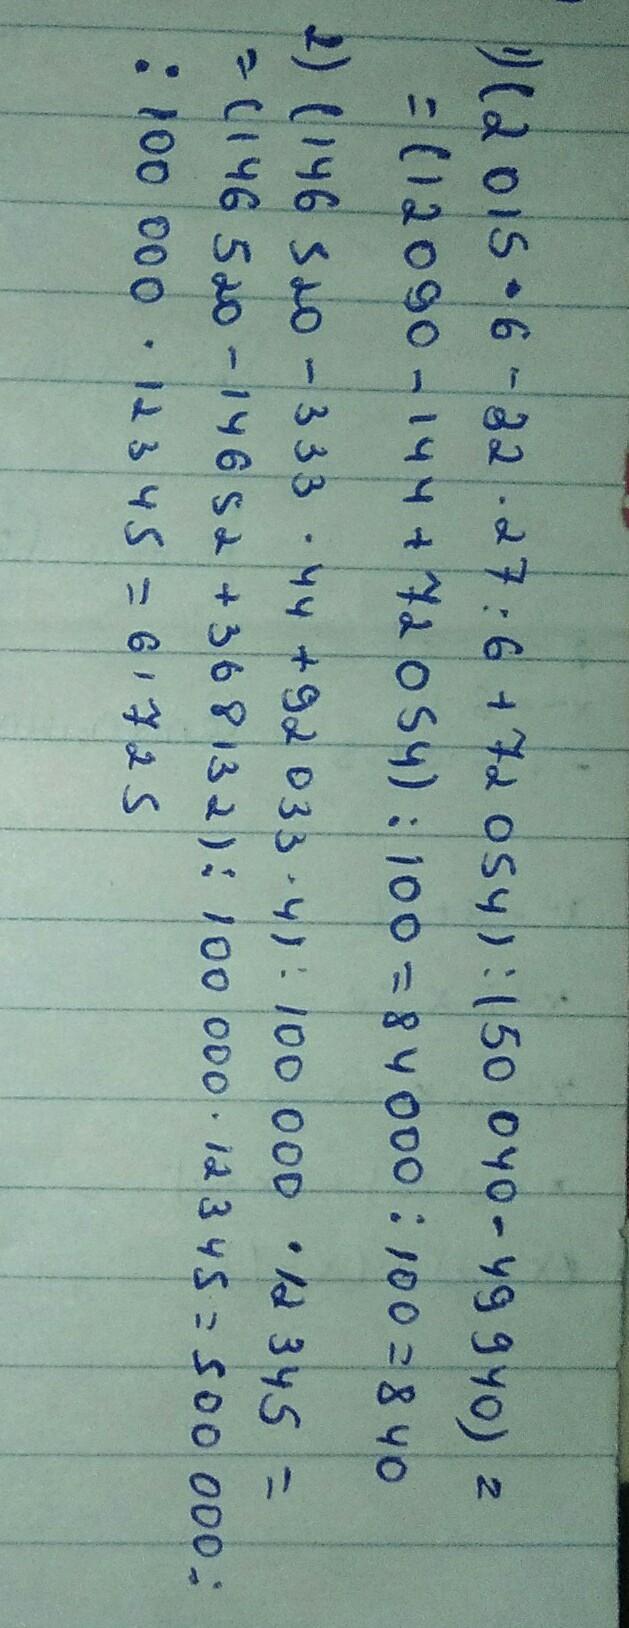 1)(2 015 • 6 - 32 · 27 : 6 + 72 054) : (50 040 - 49 940) =
= (12 090 - 144 + 72 054) : 100 = 84 000 : 100 = 840
2) (146 520 - 333 · 44 + 92 033 · 4) : 100 000 · 12 345 =
= (146 520 - 14652 + 368 132) : 100 000 · 12 345 = 500 000 :
: 100 000 · 12345 = 61725